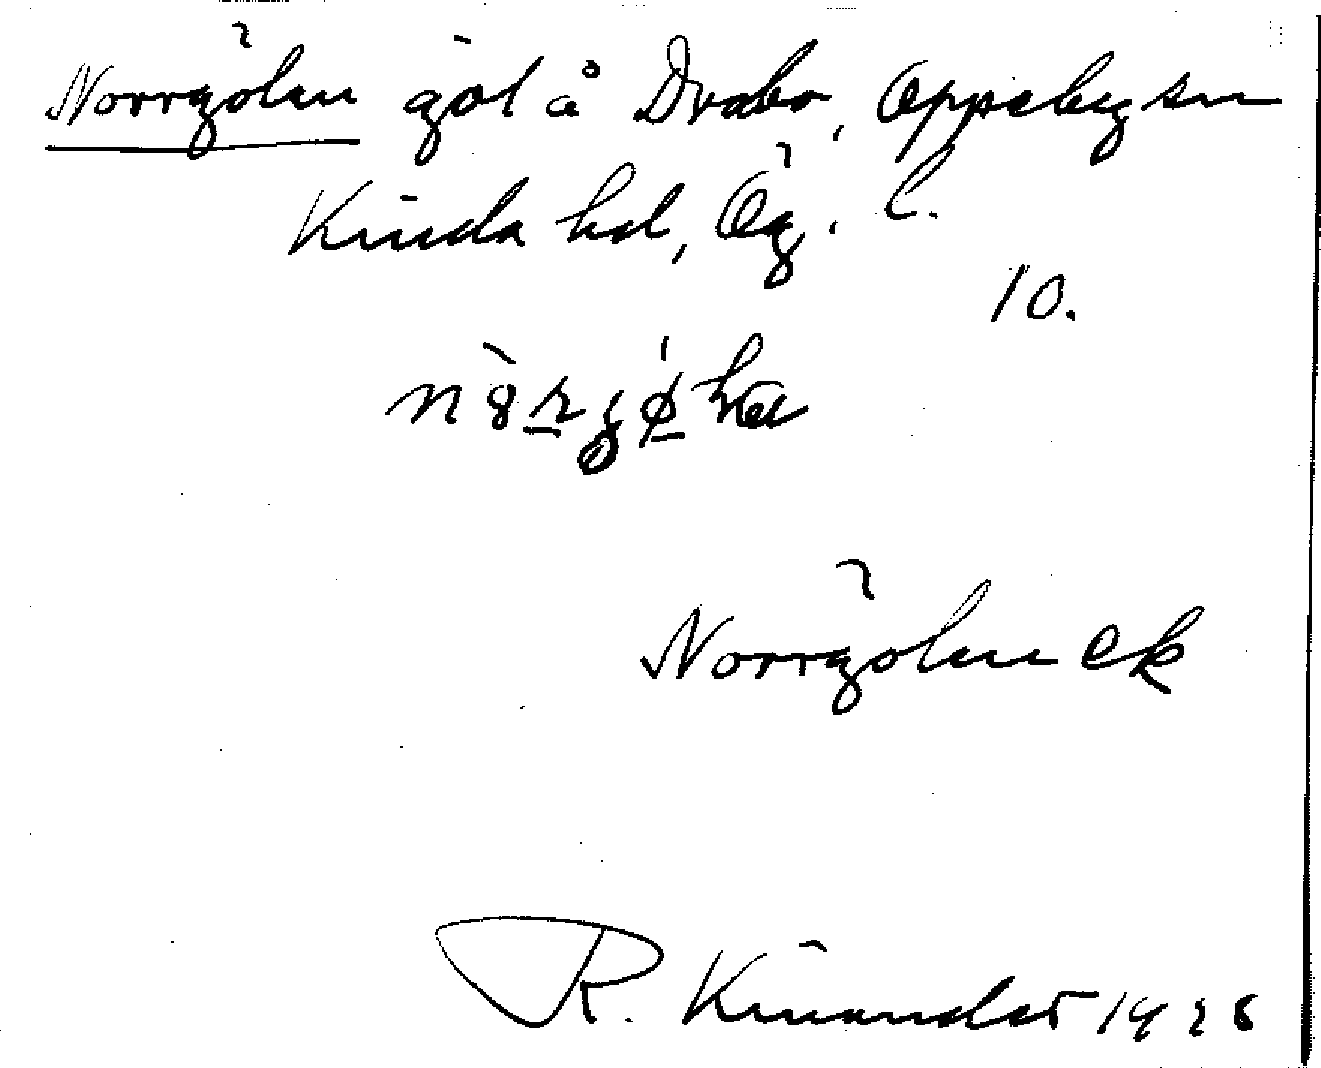 Norrgölen göl å Drabo, Oppeby sn
Kinda hd, Ög. l.
10.
Norrgölen ek
R. Kinander 1928